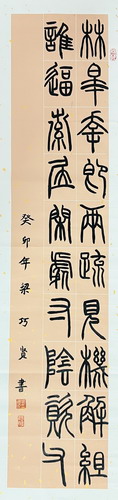 林皋幸即兩疏見機解組
誰逼索居閒處寂陰於又
癸卯年梁巧賢書